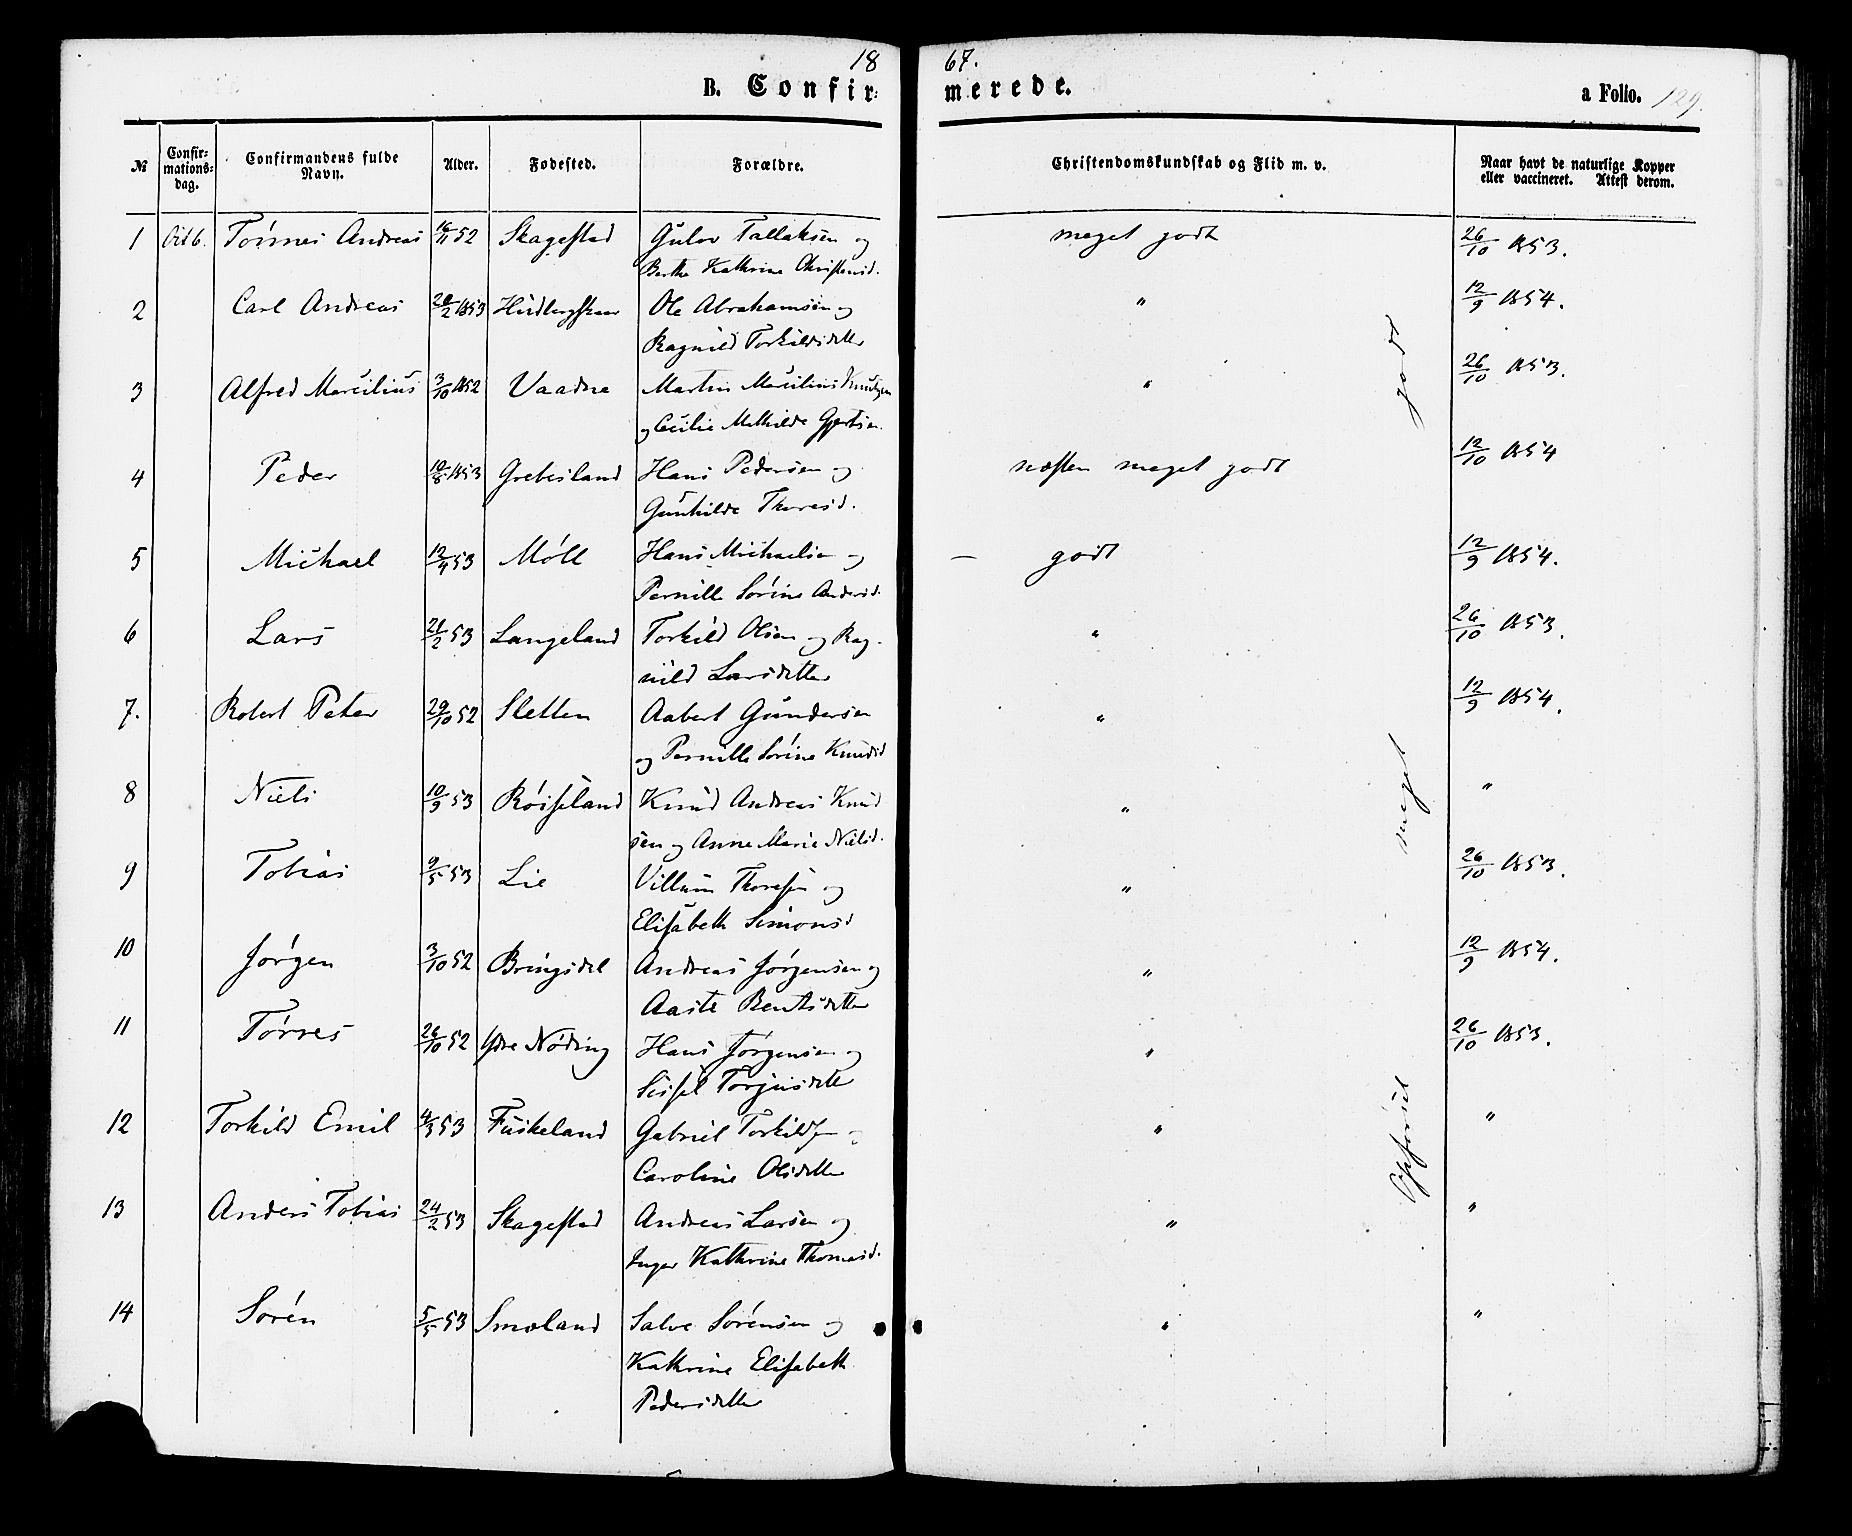 1867.
B. Confirmerede.
a Folio. 129.
№ Confirmationsdag. Confirmandens fulde Navn. Alder. Fødested. Forældre. Christendomskundskab og Flid m. v. Naar havt de naturlige Kopper eller vaccineret. Attest derom.
1 Oct 6. Tørres Andreas 16/11 52 Skagestad Gulov Tallaksen og meget godt 26/10 1853.
Berthe Kathrine Christensd.
2 Carl Andreas 1853 Ole Abrahamsen og " 12/9 1854.
Ragnild Torkildsdetter
3 Alfred Marcilius 3/10 1852 Vaadne Martin Marcilius Knutzen " 26/10 1853.
og Cecilie Mathilde Gjertsen
4 Peder 10/8 1853 Grebesland Hans Pedersen og næsten meget godt 12/10 1854
Gunhilde Thoresd.
5 Michael 12/4 53 Møll Hans Michaelsen og — godt 12/9 1854.
Pernille Sørine Andersd.
6 Lars 21/2 53 Langeland Torkild Olsen og Rag- " 26/10 1853.
nild Larsdetter
7. Robert Peter 29/10 52 Sletten Aabert Gundersen " 12/9 1854.
og Pernille Sørine Knudsd
8 Niels 10/9 53 Røiseland Knud Andreas Knud " "
sen og Anne Marie Nielsd.
9 Tobias 9/5 53 Lie Villum Thoresen og " 26/10 1853.
Elisabeth Simonsd
10 Jørgen 3/10 52 Bringsdal Andreas Jørgensen og " 12/9 1854.
Aaste Bentsdetter
11 Tørres 26/10 52 Ydre Nøding Hans Jørgensen og " 26/10 1853.
Sissel Torjusdetter
12 Torkild Emil 4/3 53 Fuskeland Gabriel Torkildsen og " "
Caroline Olsdetter
13 Anders Tobias 24/2 53 Skagestad Andreas Larsen og " "
Inger Kathrine Thomasd.
14 Sørén 5/5 53 Smaland Salve Sørensen og " "
Kathrine Elisabeth
Pedersdetter
Opførsel meget godt